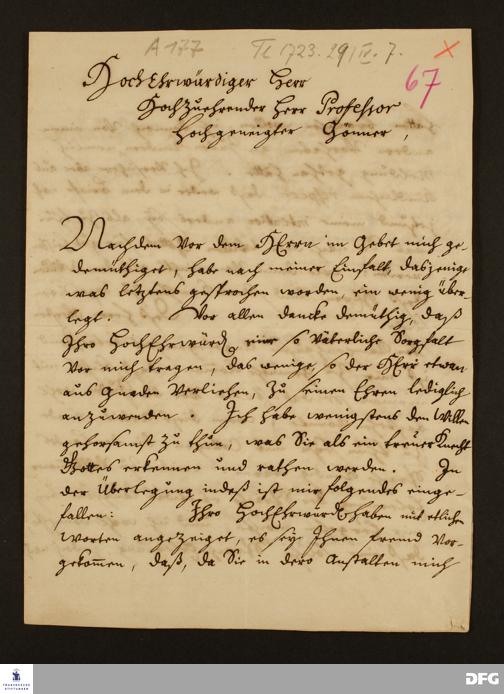 A 177 Tc 1723. 29/IV. 7.
67
HochEhrwürdiger Herr
Hochzuehrender Herr Professor
Hochgeneigter Gönner,
Nachdem vor dem HErrn im Gebet mich ge-
demüthiget, habe nach meiner Einfalt, dasjenige
was letztens gesprochen worden, ein wenig über-
legt. Vor allen dancke demüthig, daß
Ihro HochEhrwürd. eine so väterliche Sorgfalt
vor mich tragen, das wenige, so der HErr etwan
aus Gnaden verliehen, zu seinen Ehren lediglich
anzuwenden. Ich habe wenigstens den Willen
gehorsamst zu thun, was Sie als ein treuer Knecht
Gottes erkennen und rathen werden. In
der Überlegung indeß ist mir folgendes einge-
fallen: Ihro HochEhrwürd. haben mit etlichen
Worten angezeiget, es sey Ihnen fremd vor-
gekommen, daß, da Sie in dero Anstalten mich
FRANCKESCHE
STIFTUNGEN
DFG